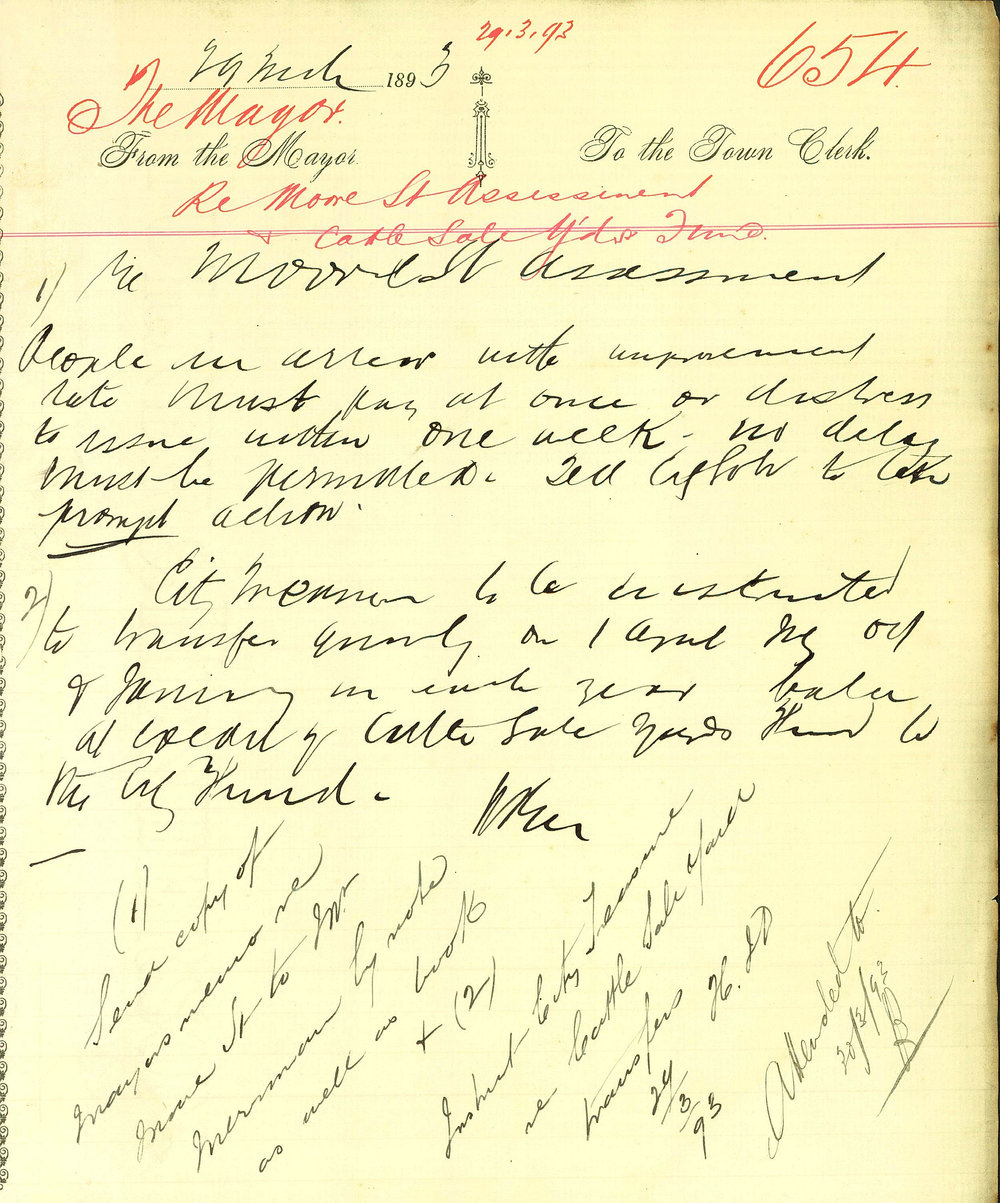 29.3.93
654.
29 Mch 1893
The Mayor.
From the Mayor.
To the Town Clerk.
Re Moore St Assessment
+ Cattle Sale Y'ds Fund.
1) Re Moore St Assessment
People in arrear with improvement
rate must pay at once or distress
to issue within one week - no delay
must be permitted. to take
prompt action.
2) City Treasurer to be instructed
to transfer quarterly on 1 April July Oct
& January in each year balce
at credit of Cattle Sale Yards Fund to
the City Fund.
(1)
Send copy of
Mayors memo re
Moore St to Mr
Merriman by note
as well as book
+ (2)
Instruct City Treasurer
re Cattle Sale Yards
transfers
29/3/93
Attended to.